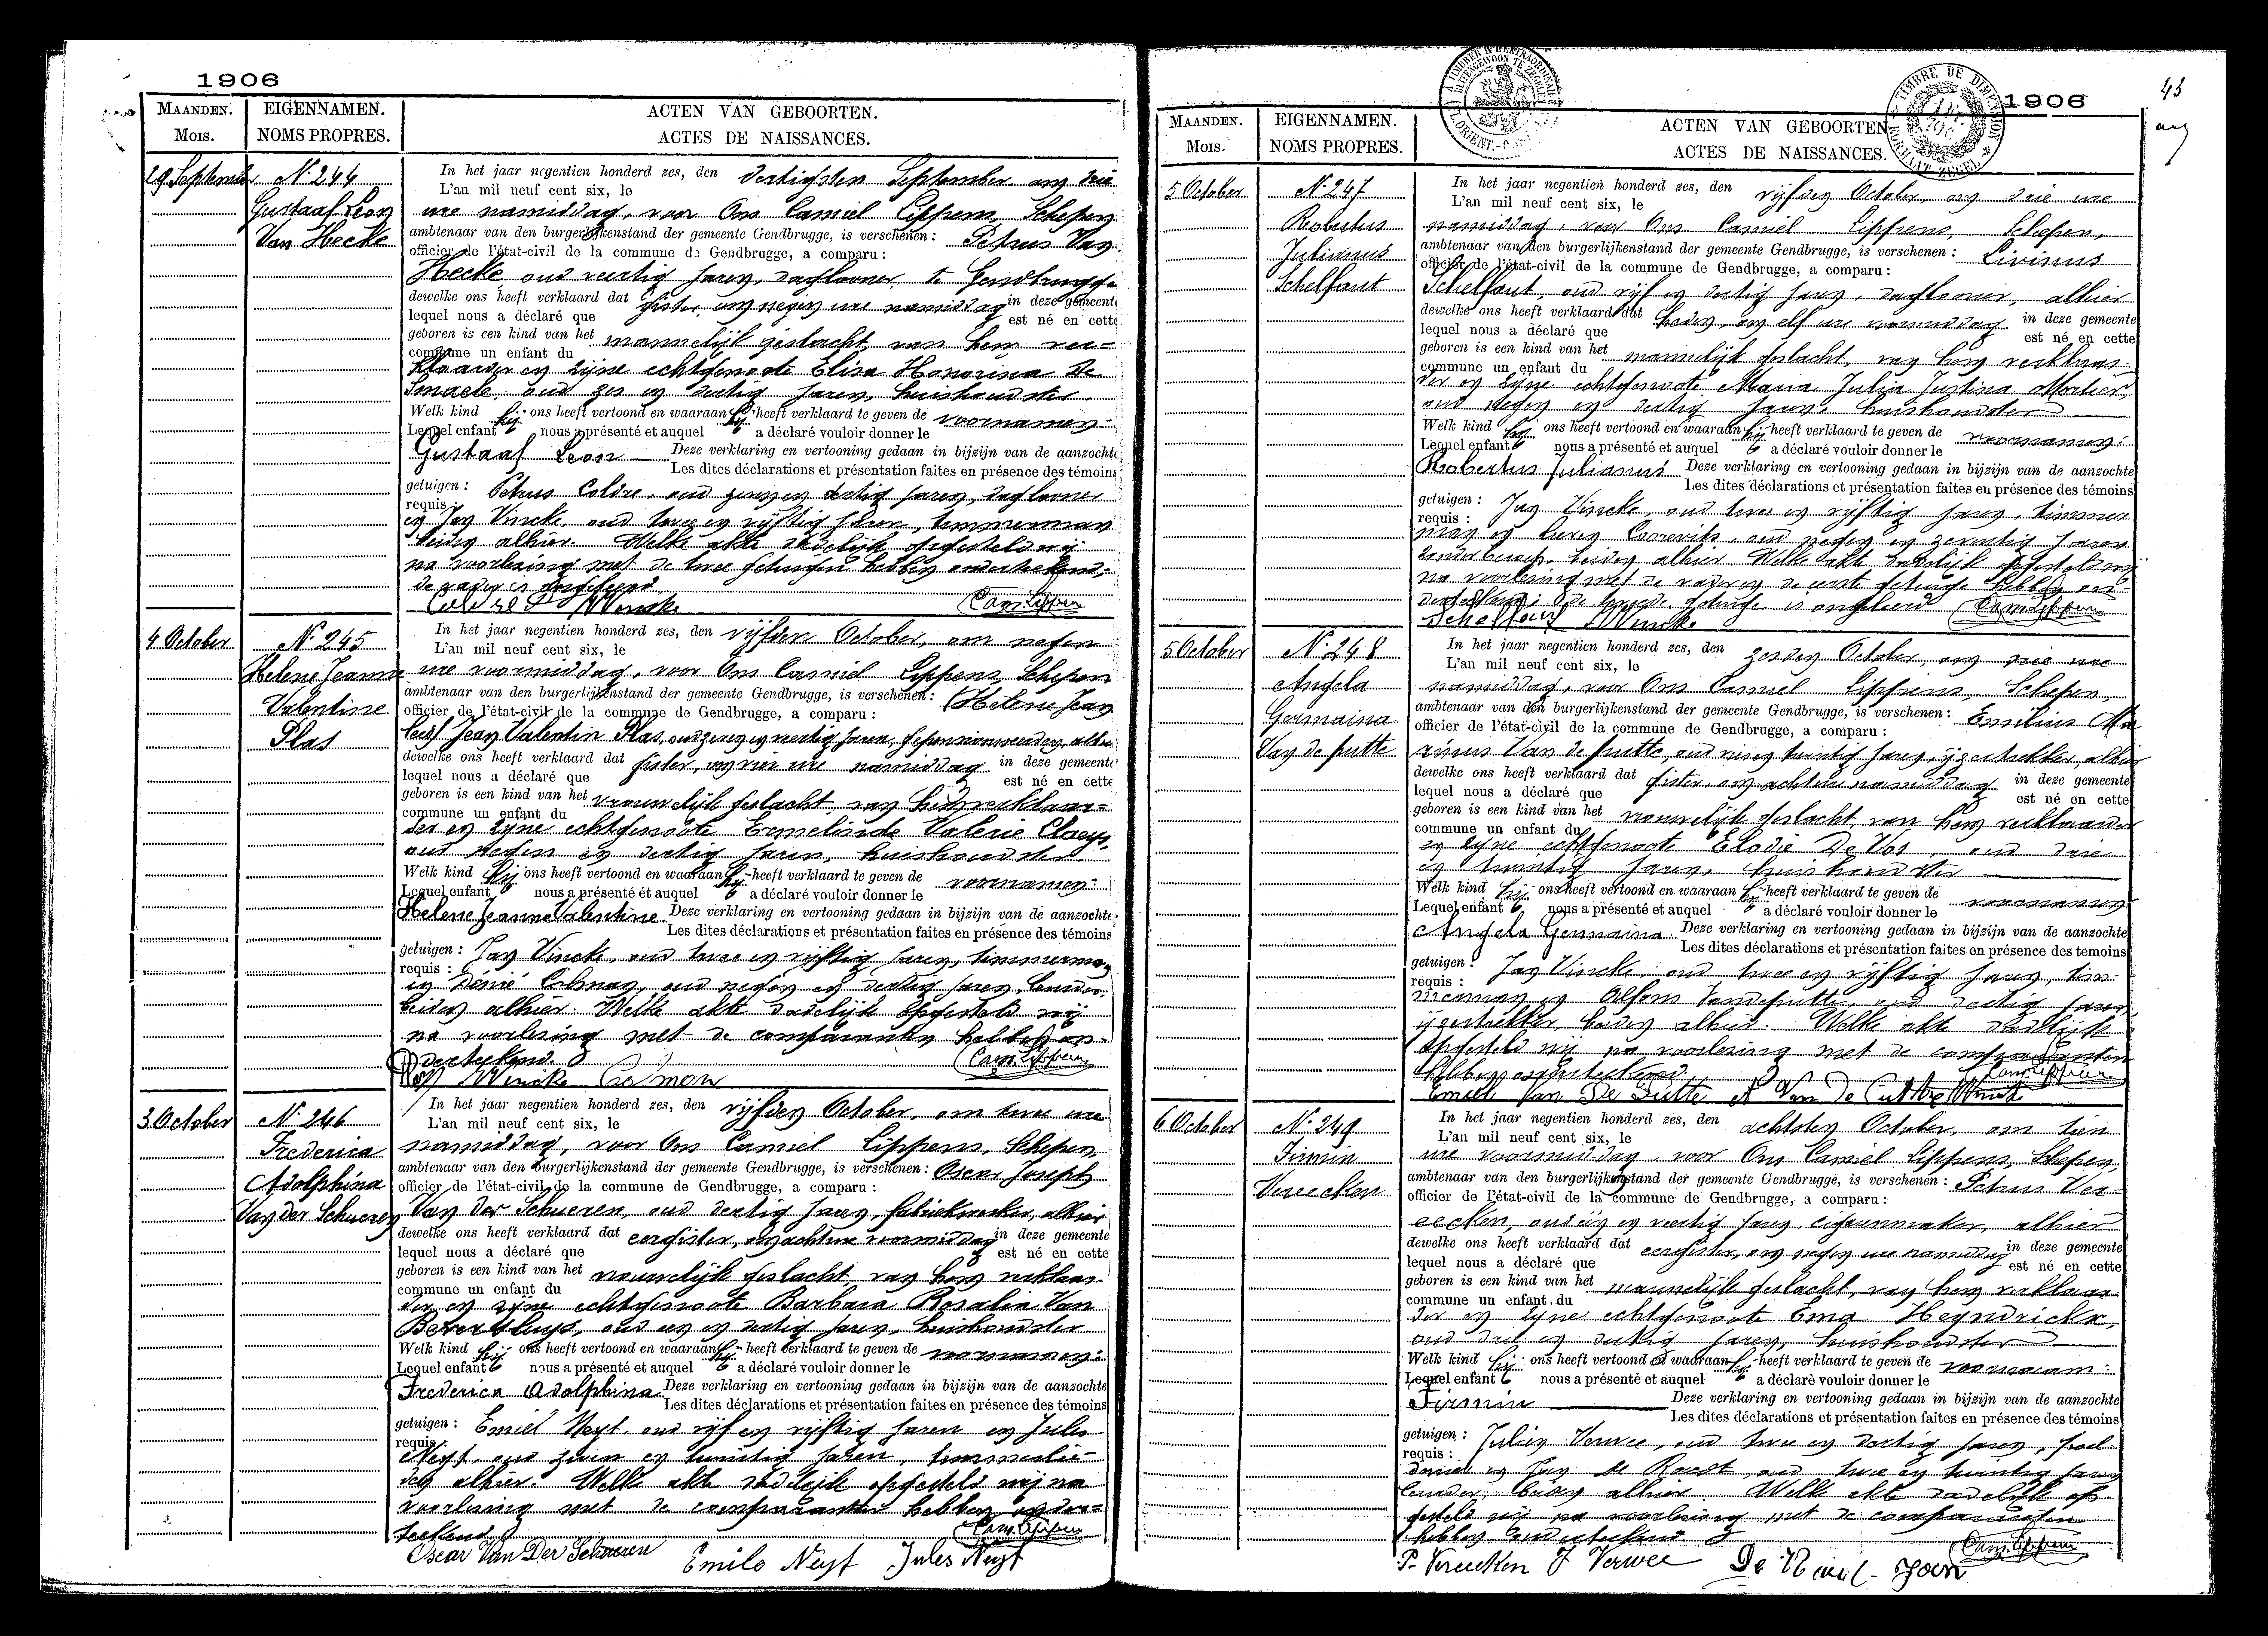 1906
MAANDEN. EIGENNAMEN. ACTEN VAN GEBOORTEN.
MOIS. NOMS PROPRES. ACTES DE NAISSANCES.
29 September N. 244
Gustaaf Leon
Van Hecke
In het jaar negentien honderd zes, den dertigsten September om drie
L'an mil neuf cent six, le
ure namiddag, voor Ons Camiel Lippens, Schepen
ambtenaar van den burgerlijkenstand der gemeente Gendbrugge, is verschenen: Petrus Van
officier de l'état-civil de la commune de Gendbrugge, a comparu:
Hecke, oud veertig jaren, daglooner, te Gendbrugge
dewelke ons heeft verklaard dat gister, om negen ure namiddag in deze gemeente
lequel nous a déclaré que est né en cette
geboren is een kind van het mannelijk geslacht, van hem ver-
commune un enfant du
klaarder en zijne echtgenoote Elisa Honorina De
Smaele, oud zes en dertig jaren, huishoudster.
Welk kind hij ons heeft vertoond en waaraan hij heeft verklaard te geven de voornamen:
Lequel enfant nous a présenté et auquel a déclaré vouloir donner le
Gustaaf Leon Deze verklaring en vertooning gedaan in bijzijn van de aanzochte
Les dites déclarations et présentation faites en présence des témoins
getuigen: Petrus Coldre, oud zeven en dertig jaren, daglooner
requis:
en Jan Vincke, oud twee en vijftig jaren, timmerman
beiden alhier. Welke akte dadelijk opgesteld wij
na voorlezing met de twee getuigen hebben onderteekend;
de vader is ongeleerd
Coldre P Vincke Cam Lippens
4 October N. 245
Helene Jeanne
Valentine
Plas
In het jaar negentien honderd zes, den vijfden October, om negen
L'an mil neuf cent six, le
ure voormiddag, voor Ons Camiel Lippens, Schepen
ambtenaar van den burgerlijkenstand der gemeente Gendbrugge, is verschenen: (Helene Jean
officier de l'état-civil de la commune de Gendbrugge, a comparu:
Jean Valentin Plas, oud zeven en veertig jaren, alhier
dewelke ons heeft verklaard dat gister, om vier ure namiddag in deze gemeente
lequel nous a déclaré que est né en cette
geboren is een kind van het vrouwelijk geslacht, van hem verklaar-
commune un enfant du
der en zijne echtgenoote Ermelinde Valerie Claeys,
oud negen en dertig jaren, huishoudster.
Welk kind hij ons heeft vertoond en waaraan hij heeft verklaard te geven de voornamen:
Lequel enfant nous a présenté et auquel a déclaré vouloir donner le
Helene Jeanne Valentine Deze verklaring en vertooning gedaan in bijzijn van de aanzochte
Les dites déclarations et présentation faites en présence des témoins
getuigen: Jan Vincke, oud twee en vijftig jaren, timmerman
requis:
en oud negen en dertig jaren,
beiden alhier. Welke akte dadelijk opgesteld wij
na voorlezing met de comparanten hebben on-
derteekend. Cam Lippens
Plas Vincke
3 October N. 246
Frederica
Adolphina
Van der Schueren
In het jaar negentien honderd zes, den vijfden October, om twee ure
L'an mil neuf cent six, le
namiddag, voor Ons Camiel Lippens, Schepen,
ambtenaar van den burgerlijkenstand der gemeente Gendbrugge, is verschenen: Oscar Joseph
officier de l'état-civil de la commune de Gendbrugge, a comparu:
Van der Schueren, oud dertig jaren, fabriekwerker, alhier
dewelke ons heeft verklaard dat eergister, om acht ure voormiddag in deze gemeente
lequel nous a déclaré que est né en cette
geboren is een kind van het vrouwelijk geslacht, van hem verklaar-
commune un enfant du
der en zijne echtgenoote Barbara Rosalia Van
Beversluys, oud een en dertig jaren, huishoudster
Welk kind hij ons heeft vertoond en waaraan hij heeft verklaard te geven de voornamen:
Lequel enfant nous a présenté et auquel a déclaré vouloir donner le
Frederica Adolphina Deze verklaring en vertooning gedaan in bijzijn van de aanzochte
Les dites déclarations et présentation faites en présence des témoins
getuigen: Emiel Neyt, oud vijf en vijftig jaren en Jules
requis:
Neyt, oud zeven en twintig jaren, timmerlie-
den alhier. Welke akte dadelijk opgesteld wij na
voorlezing met de comparanten hebben onder-
teekend. Cam Lippens
Oscar Van Der Schueren Emile Neyt Jules Neyt
43
1906
MAANDEN. EIGENNAMEN. ACTEN VAN GEBOORTEN
MOIS. NOMS PROPRES. ACTES DE NAISSANCES.
5 October N. 247
Robertus
Julianus
Schelfaut
In het jaar negentien honderd zes, den vijfden October, om drie ure
L'an mil neuf cent six, le
namiddag, voor Ons Camiel Lippens, Schepen,
ambtenaar van den burgerlijkenstand der gemeente Gendbrugge, is verschenen: Livinus
officier de l'état-civil de la commune de Gendbrugge, a comparu:
Schelfaut, oud vijf en dertig jaren, daglooner, alhier
dewelke ons heeft verklaard dat heden, om elf ure voormiddag in deze gemeente
lequel nous a déclaré que est né en cette
geboren is een kind van het mannelijk geslacht, van hem verklaar-
commune un enfant du
der en zijne echtgenoote Maria Julia Justina Mortier,
oud negen en dertig jaren, huishoudster
Welk kind hij ons heeft vertoond en waaraan hij heeft verklaard te geven de voornamen:
Lequel enfant nous a présenté et auquel a déclaré vouloir donner le
Robertus Julianus Deze verklaring en vertooning gedaan in bijzijn van de aanzochte
Les dites déclarations et présentation faites en présence des témoins
getuigen: Jan Vincke, oud twee en vijftig jaren, timmer-
requis:
man en oud negen en zeventig jaren
beiden alhier. Welke akte dadelijk opgesteld wij
na voorlezing met de vader en de eerste getuige hebben on-
derteekend; de tweede getuige is ongeleerd Cam Lippens
Schelfaut Vincke
5 October N. 248
Angela
Germaina
Van de putte
In het jaar negentien honderd zes, den zesden October, om drie ure
L'an mil neuf cent six, le
namiddag, voor Ons Camiel Lippens, Schepen,
ambtenaar van den burgerlijkenstand der gemeente Gendbrugge, is verschenen: Emilius Ma
officier de l'état-civil de la commune de Gendbrugge, a comparu:
rinus Van de putte, oud twintig jaren, ijzertrekker, alhier
dewelke ons heeft verklaard dat gister, om acht ure namiddag in deze gemeente
lequel nous a déclaré que est né en cette
geboren is een kind van het vrouwelijk geslacht, van hem verklaarder
commune un enfant du
en zijne echtgenoote Elodie De Vos, oud drie
en twintig jaren, huishoudster
Welk kind hij ons heeft vertoond en waaraan hij heeft verklaard te geven de voornamen
Lequel enfant nous a présenté et auquel a déclaré vouloir donner le
Angela Germaina Deze verklaring en vertooning gedaan in bijzijn van de aanzochte
Les dites déclarations et présentation faites en présence des temoins
getuigen: Jan Vincke, oud twee en vijftig jaren, tim-
requis:
merman en Alfons Vandeputte, oud dertig jaren
ijzertrekker, beiden alhier. Welke akte dadelijk
opgesteld wij na voorlezing met de comparanten
hebben onderteekend. Cam Lippens
Emiel Van De Putte A Van De Putte Vincke
6 October N. 249
Firmin
Vereecken
In het jaar negentien honderd zes, den achtsten October, om tien
L'an mil neuf cent six, le
ure voormiddag, voor Ons Camiel Lippens, Schepen,
ambtenaar van den burgerlijkenstand der gemeente Gendbrugge, is verschenen: Petrus Ver-
officier de l'état-civil de la commune de Gendbrugge, a comparu:
eecken, oud en veertig jaren, cigarenmaker, alhier
dewelke ons heeft verklaard dat eergister, om negen ure namiddag in deze gemeente
lequel nous a déclaré que est né en cette
geboren is een kind van het mannelijk geslacht, van hem verklaar-
commune un enfant du
der en zijne echtgenoote Ema Heyndrickx,
oud drie en dertig jaren, huishoudster
Welk kind hij ons heeft vertoond en waaraan hij heeft verklaard te geven de voornaam:
Lequel enfant nous a présenté et auquel a déclaré vouloir donner le
Firmin Deze verklaring en vertooning gedaan in bijzijn van de aanzochte
Les dites déclarations et présentation faites en présence des témoins
getuigen: Julien Verwee, oud twee en dertig jaren,
requis:
en Jan De oud twee en twintig jaren
beiden alhier. Welke akte dadelijk op-
gesteld wij na voorlezing met de comparanten
hebben onderteekend Cam Lippens
P. Vereecken J Verwee De Jan